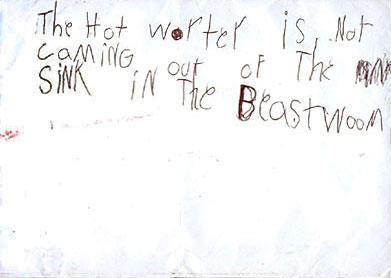 The Hot worter is Not
caming out of The
SiNK iN The Beastwoom